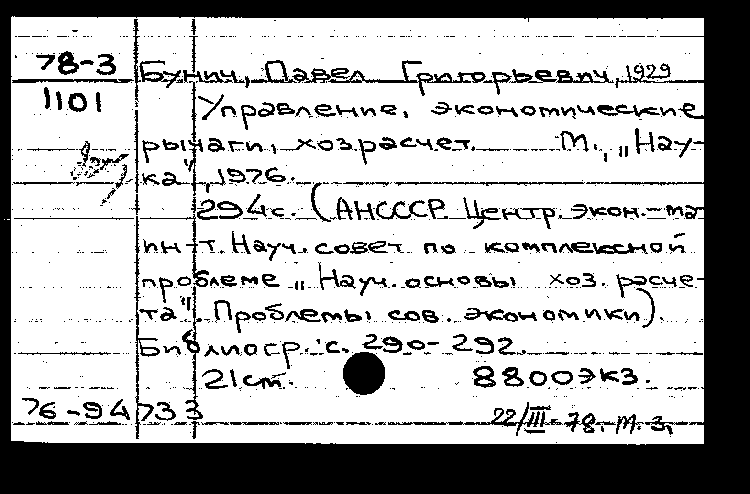 78-3 Бунич, Павел Григорьевич, 1929
1101 Управление, экономические
рычаги, хозрасчет. М., „Нау-
ка", 1976.
294с. (АНСССР. Центр. экон.-мат
ин-т. Науч. совет по комплексной
проблеме „Науч. основы хоз. расче-
та". Проблемы сов. экономики).
Библиогр.: с. 290-292.
21см. 8800экз.
76-94733
22/III-78. т. з.